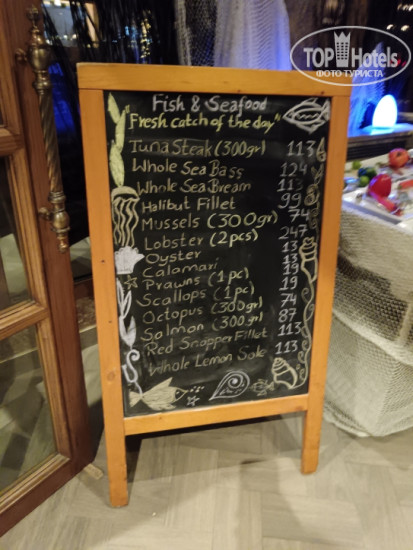 TOPHotels
ФОТО ТУРИСТА
Fish & Seafood
"Fresh catch of the day"
Tuna Steak (300gr) 113
Whole Sea Bass 124
Whole Sea Bream 113
Halibut Fillet 99
Mussels (300gr) 74
Lobster (2pcs) 247
Oyster 13
Calamari 13
Prawns (1pc) 19
Scallops (1pc) 19
Octopus (300gr) 74
Salmon (300gr) 87
Red Snapper Fillet 113
Whole Lemon Sole 113